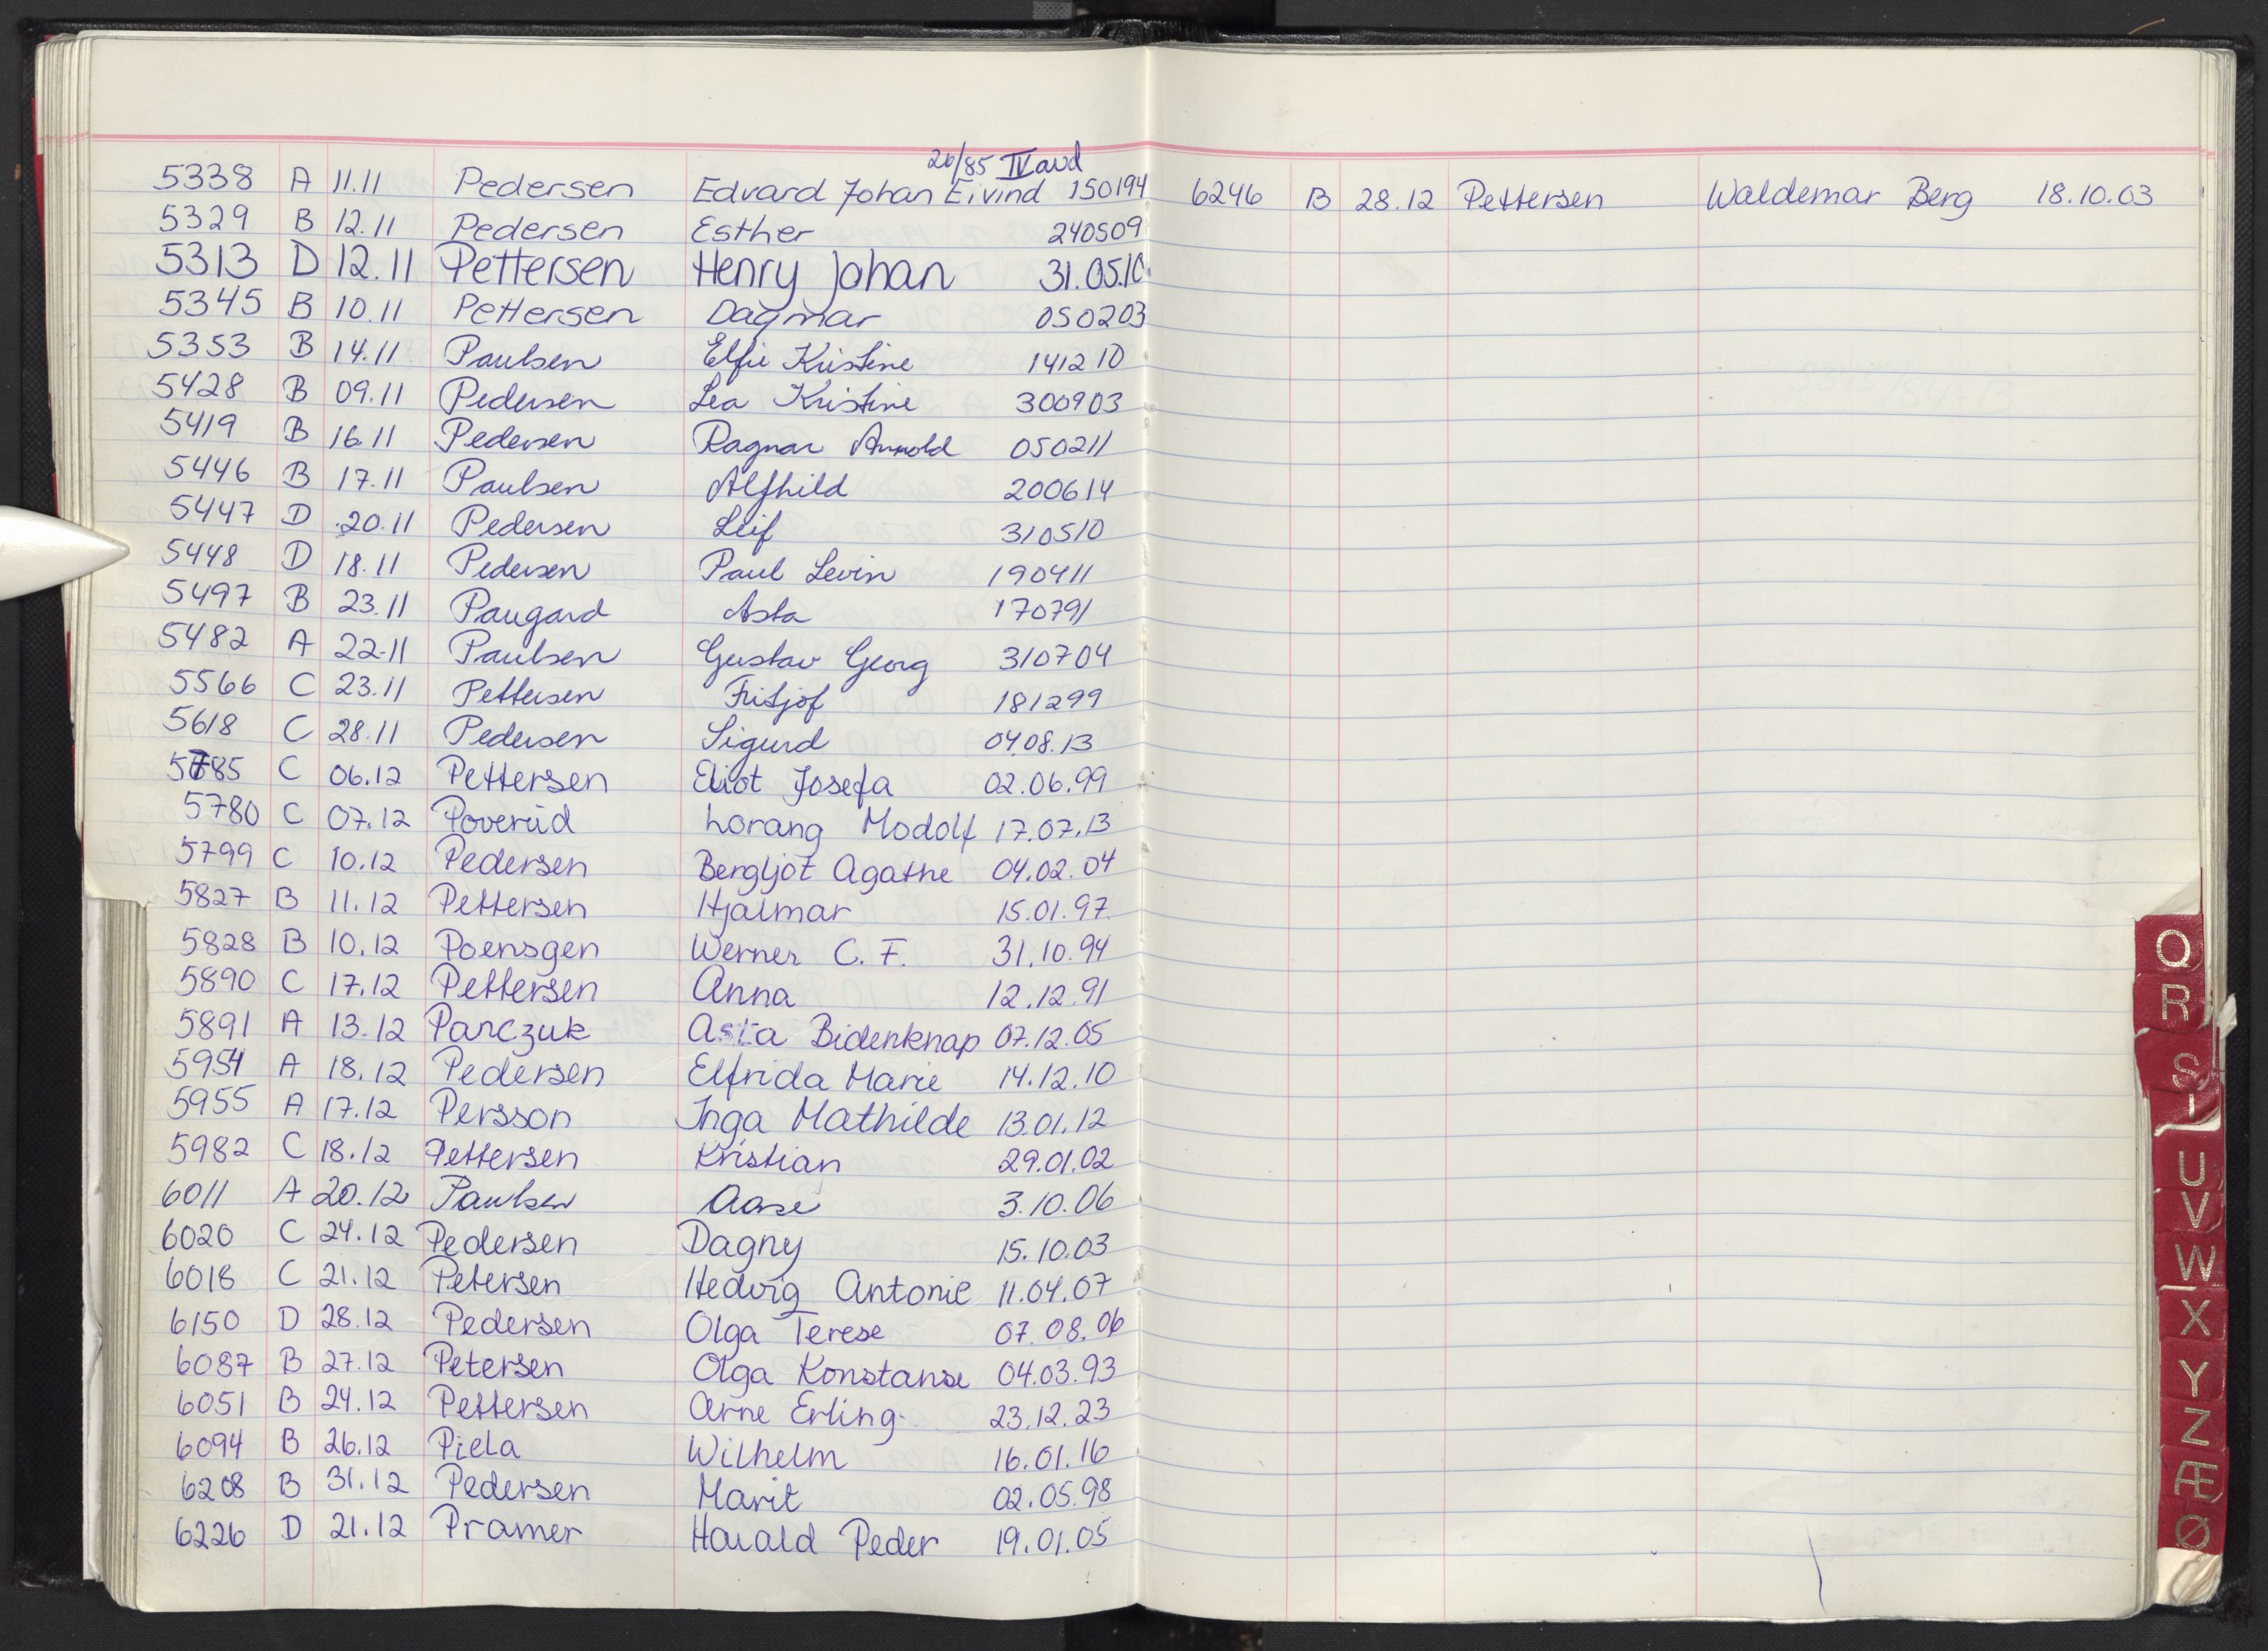 26/85 IV avd
5338 A 11.11 Pedersen Edvard Johan Eivind 150194
5329 B 12.11 Pedersen Esther 240509
5313 D 12.11 Pettersen Henry Johan 31.05.10
5345 B 10.11 Pettersen Dagmar 050203
5353 B 14.11 Paulsen Elfie Kristine 141210
5428 B 09.11 Pedersen Lea Kristine 300903
5419 B 16.11 Pedersen Ragnar Arnold 050211
5446 B 17.11 Paulsen Alfhild 200614
5447 D 20.11 Pedersen Leif 310510
5448 D 18.11 Pedersen Paul Levin 190411
5497 B 23.11 Paugard Asta 170791
5482 A 22-11 Paulsen Gustav Georg 310704
5566 C 23.11 Pettersen Fritjof 181299
5618 C 28.11 Pedersen Sigurd 04.08.13
5785 C 06.12 Pettersen Eliot Josefa 02.06.99
5780 C 07.12 Poverud Lorang Modolf 17.07.13
5799 C 10.12 Pedersen Bergljot Agathe 04.02.04
5827 B 11.12 Pettersen Hjalmar 15.01.97
5828 B 10.12 Poensgen Werner C. F. 31.10.94
5890 C 17.12 Pettersen Anna 12.12.91
5891 A 13.12 Parczuk Asta Bidenknap 07.12.05
5954 A 18.12 Pedersen Elfrida Marie 14.12.10
5955 A 17.12 Persson Inga Mathilde 13.01.12
5982 C 18.12 Pettersen Kristian 29.01.02
6011 A 20.12 Paulsen Aase 3.10.06
6020 C 24.12 Pedersen Dagny 15.10.03
6018 C 21.12 Petersen Hedvig Antonie 11.04.07
6150 D 28.12 Pedersen Olga Terese 07.08.06
6087 B 27.12 Petersen Olga Konstanse 04.03.93
6051 B 24.12 Pettersen Arne Erling 23.12.23
6094 B 26.12 Piela Wilhelm 16.01.16
6208 B 31.12 Pedersen Marit 02.05.98
6226 D 21.12 Pramer Harald Peder 19.01.05
6246 B 28.12 Pettersen Waldemar Berg 18.10.03
Q
R
S
U
V
W
X
Y
Z
Æ
Ø